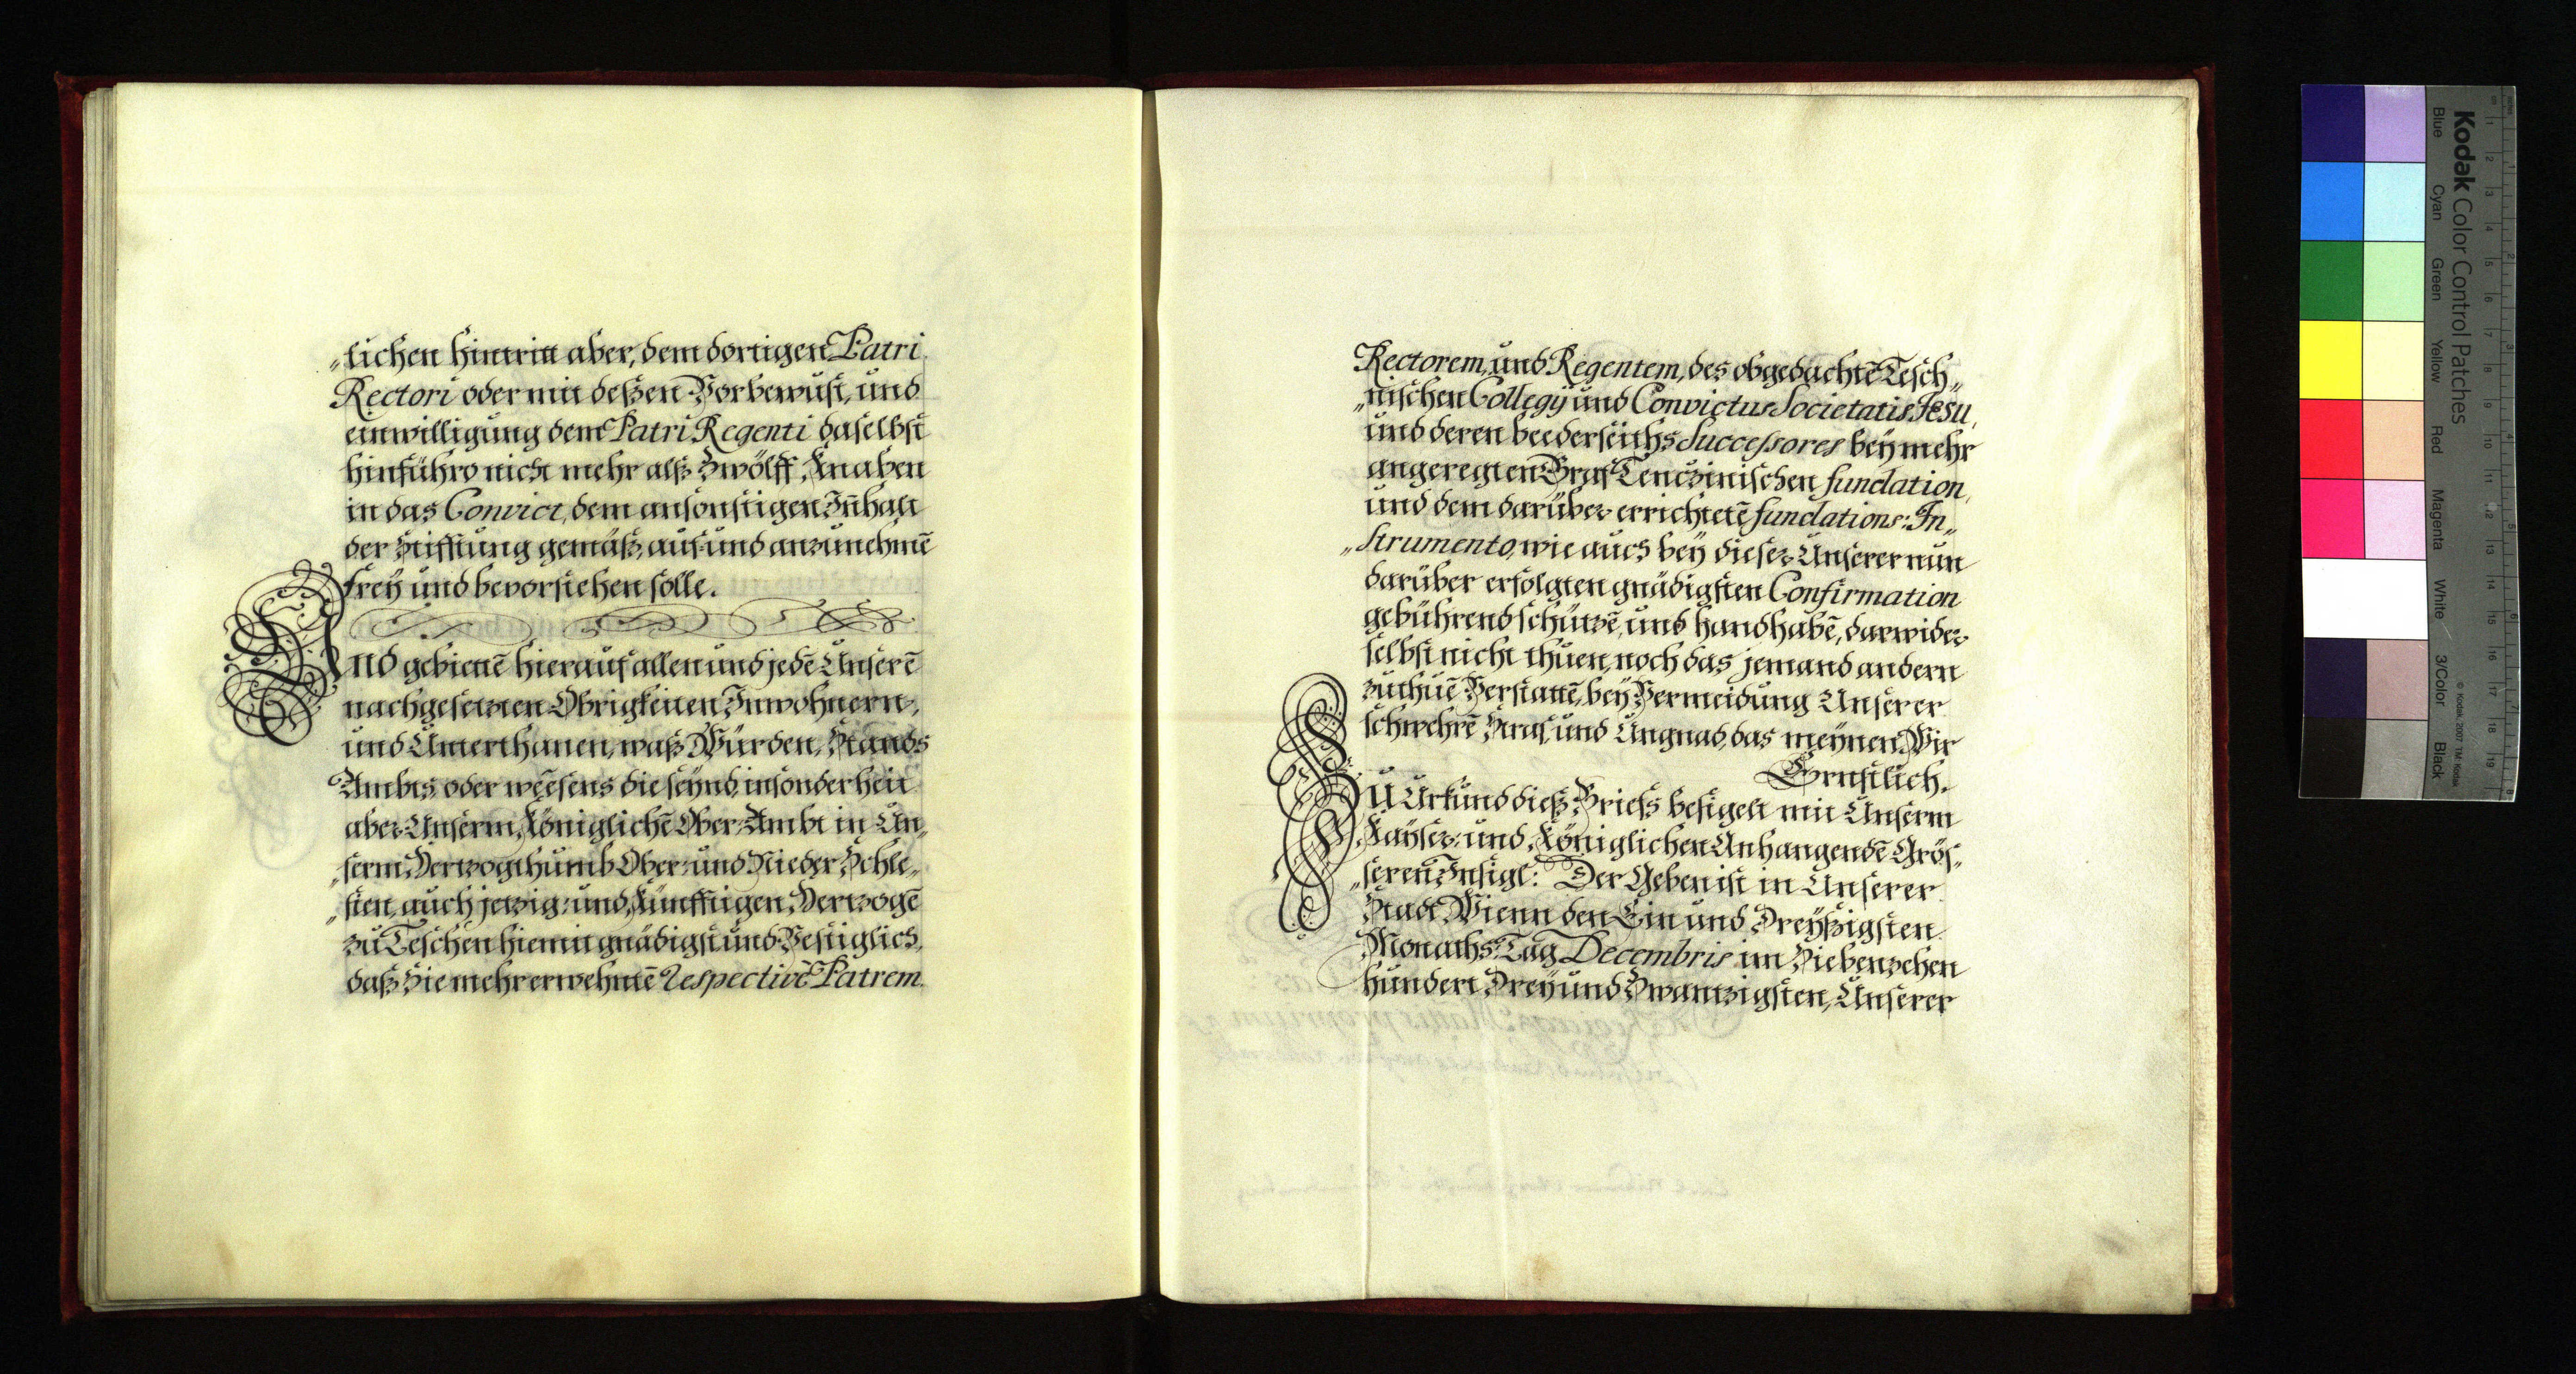 „lichen hintritt aber, dem dortigen Patri
Rectori oder mit deßen Vorbewust, und
einwilligung dem Patri Regenti daselbst
hinführo nicht mehr alß Zwölff Knaben
in das Convict, dem ansonstigen Iñhalt
der Stifftung gemäß, auf und anzunehmē
frey und bevorstehen solle.
Und gebietē hierauf allen und jedē Unserē
nachgesetzten Obrigkeiten Inwohnern,
und Unterthanen, waß Würden, Stands
Ambts, oder weesens die seynd, insonderheit
aber Unserm Königlichē Ober-Ambt in Un„
„serm Hertzogthumb Ober- und Nieder Schle„
„sien, auch jetzig- und Künfftigen Hertzogē
zu Teschen hiemit gnädigst und Vestiglich,
daß Sie mehr erwehntē respectivè Patrem
Rectorem, und Regentem, des obgedachtē Tesch„
„nischen Collegÿ und Convictus Societatis Jesu,
und deren beederseiths Successores bey mehr
angeregten Graf Tenczinischen fundation,
und dem darüber errichtetē fundations-In„
„strumento, wie auch bey dieser Unserer nun
darüber erfolgten gnädigsten Confirmation
gebührend schützē, und handhabē, darwider
selbst nicht thuen, noch das jemand andern
zuthuē Verstattē, bey Vermeidung Unserer
schwehrē Straf und Ungnad, das meynen Wir
Ernstlich.
Zu Urkund dieß Briefs besigelt mit Unserm
Kayser- und Königlichen Anhangendē Grös„
„seren Insigl: Der Geben ist in Unserer
Stadt Wienn den Ein und Dreyßigsten
Monaths-Tag Decembris im Siebenzehen
hundert Drey und Zwantzigsten, Unserer
Kodak Color Control Patches
Blue Cyan Green Yellow Red Magenta White 3/Color Black
© Kodak, 2007 TM: Kodak